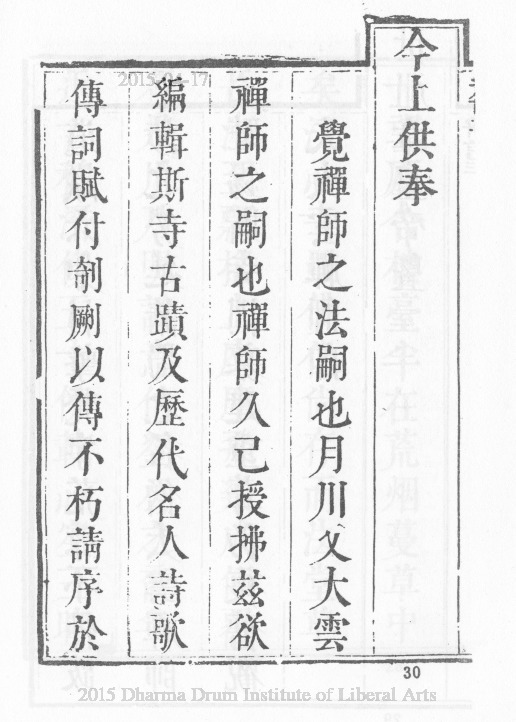 今上供奉
覺禪師之法嗣也月川乂大雲
禪師之嗣也禪師久已授拂茲欲
編輯斯寺古蹟及歷代名人詩歌
傳詞賦付剞劂以傳不朽請序於
30
2015-04-17
2015 Dharma Drum Institute of Liberal Arts